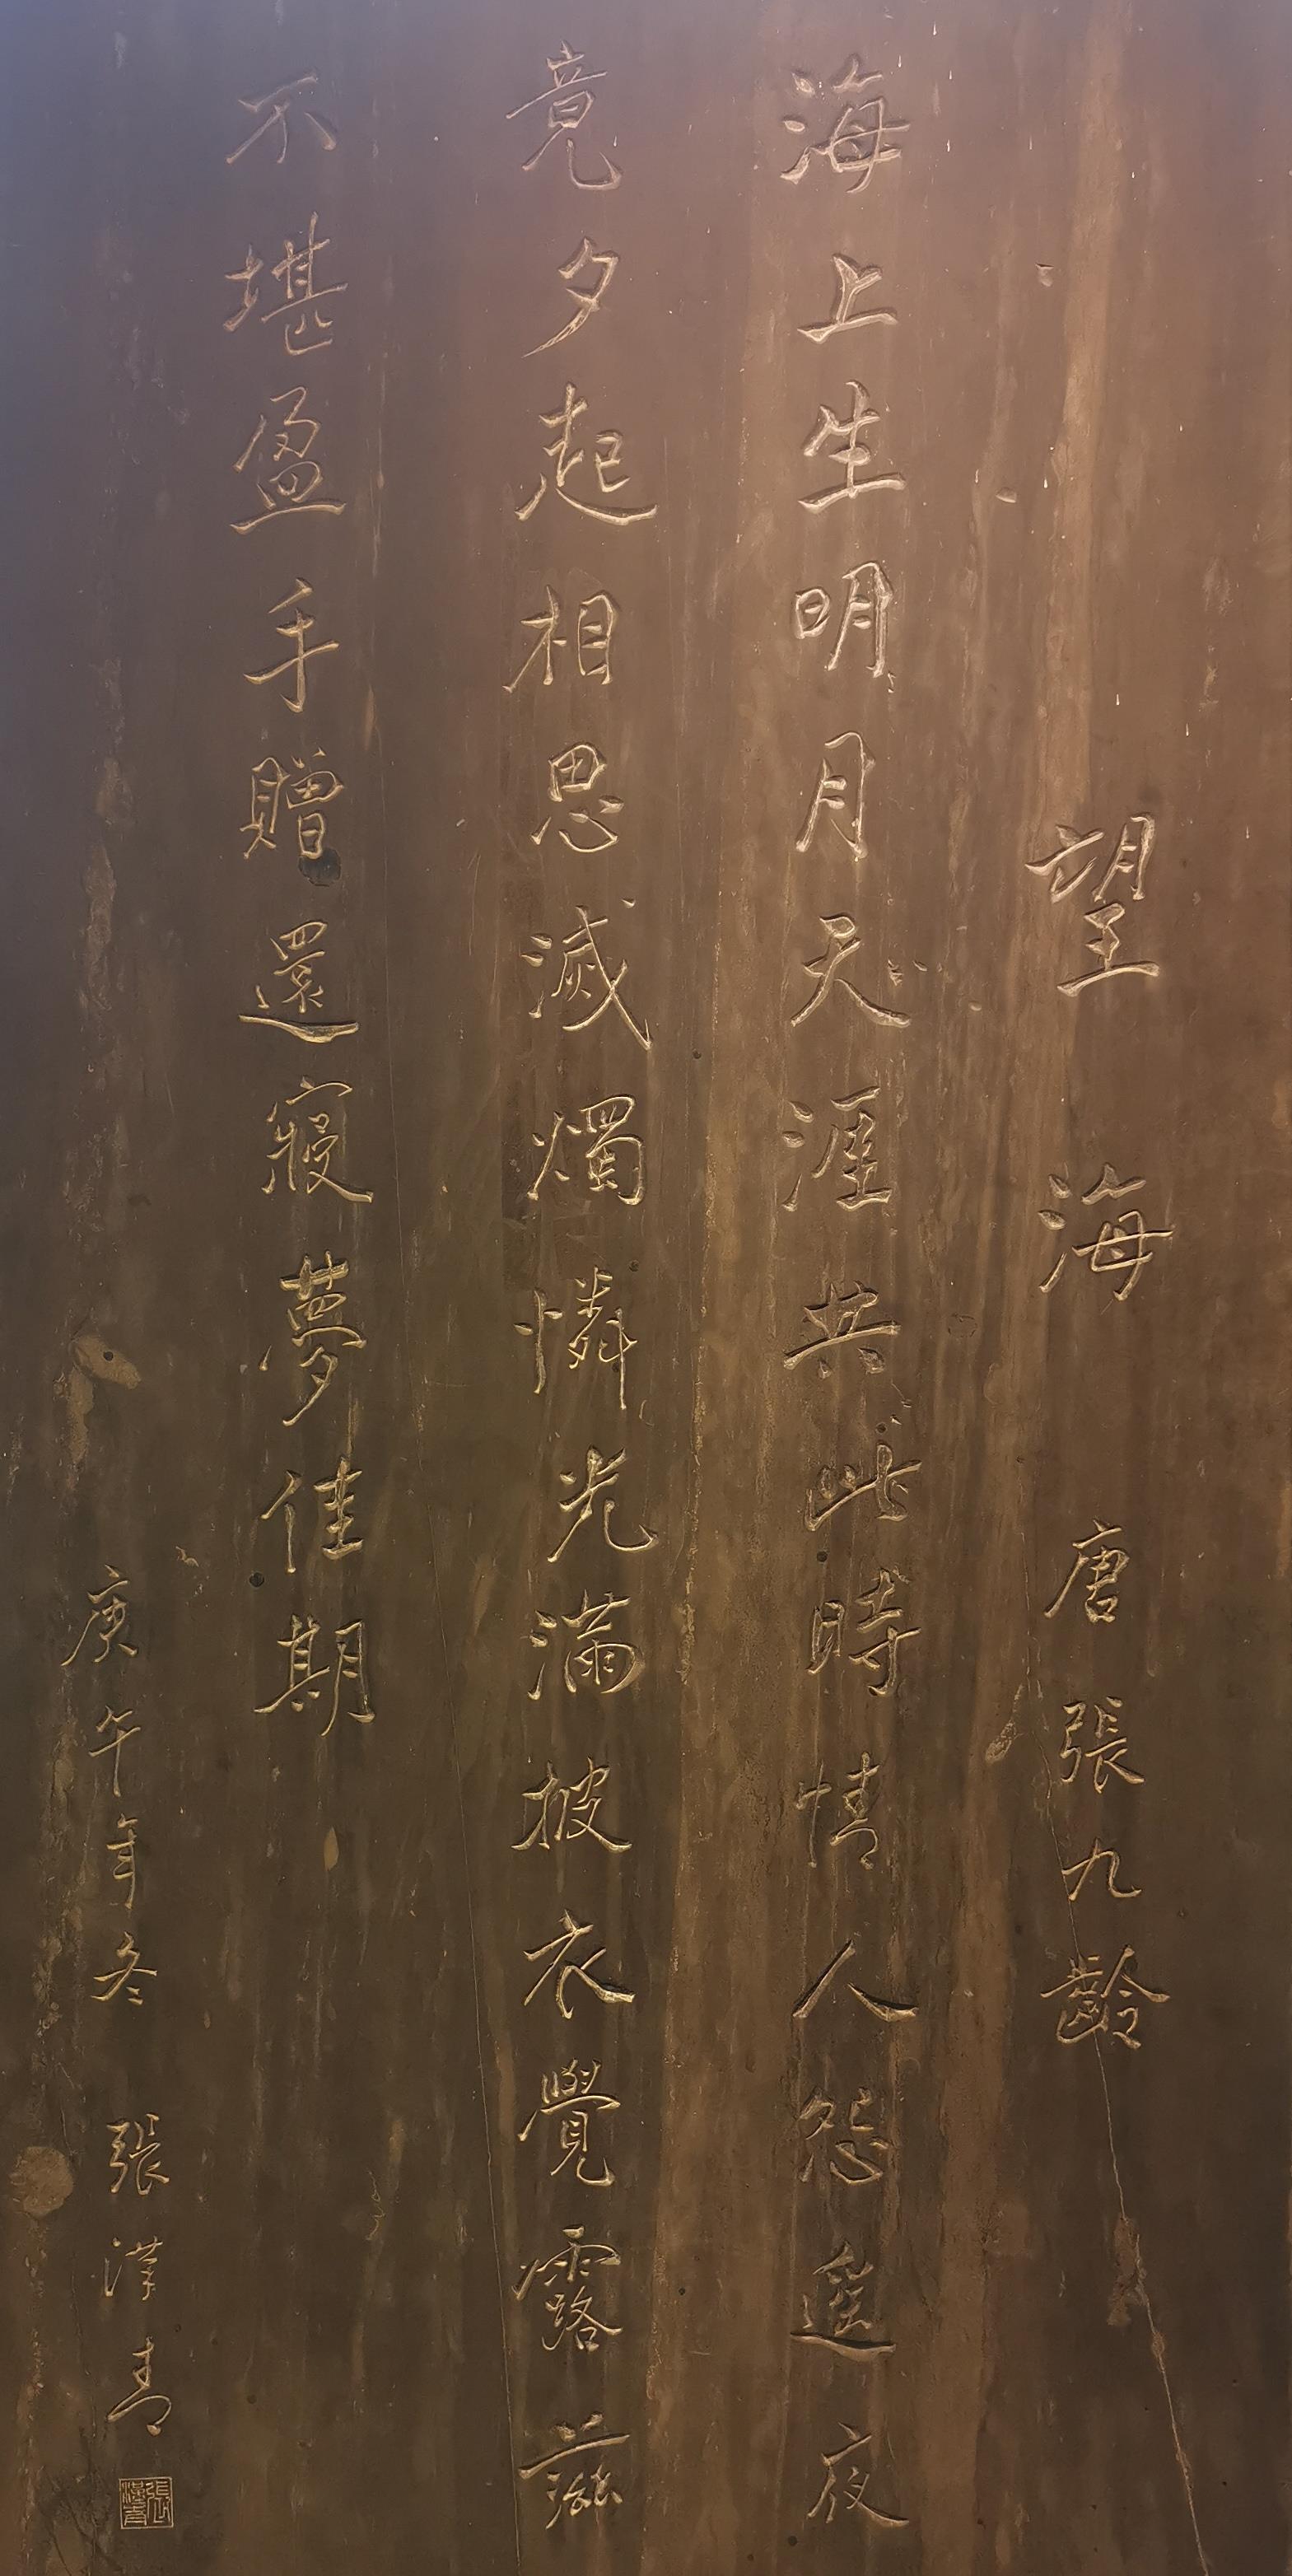 望海 唐張九齡
海上生明月天涯共此時情人怨遥夜
竟夕起相思滅燭憐光滿披衣覺露滋
不堪盈手贈還寢夢佳期
庚午年冬 張漢青
張漢青